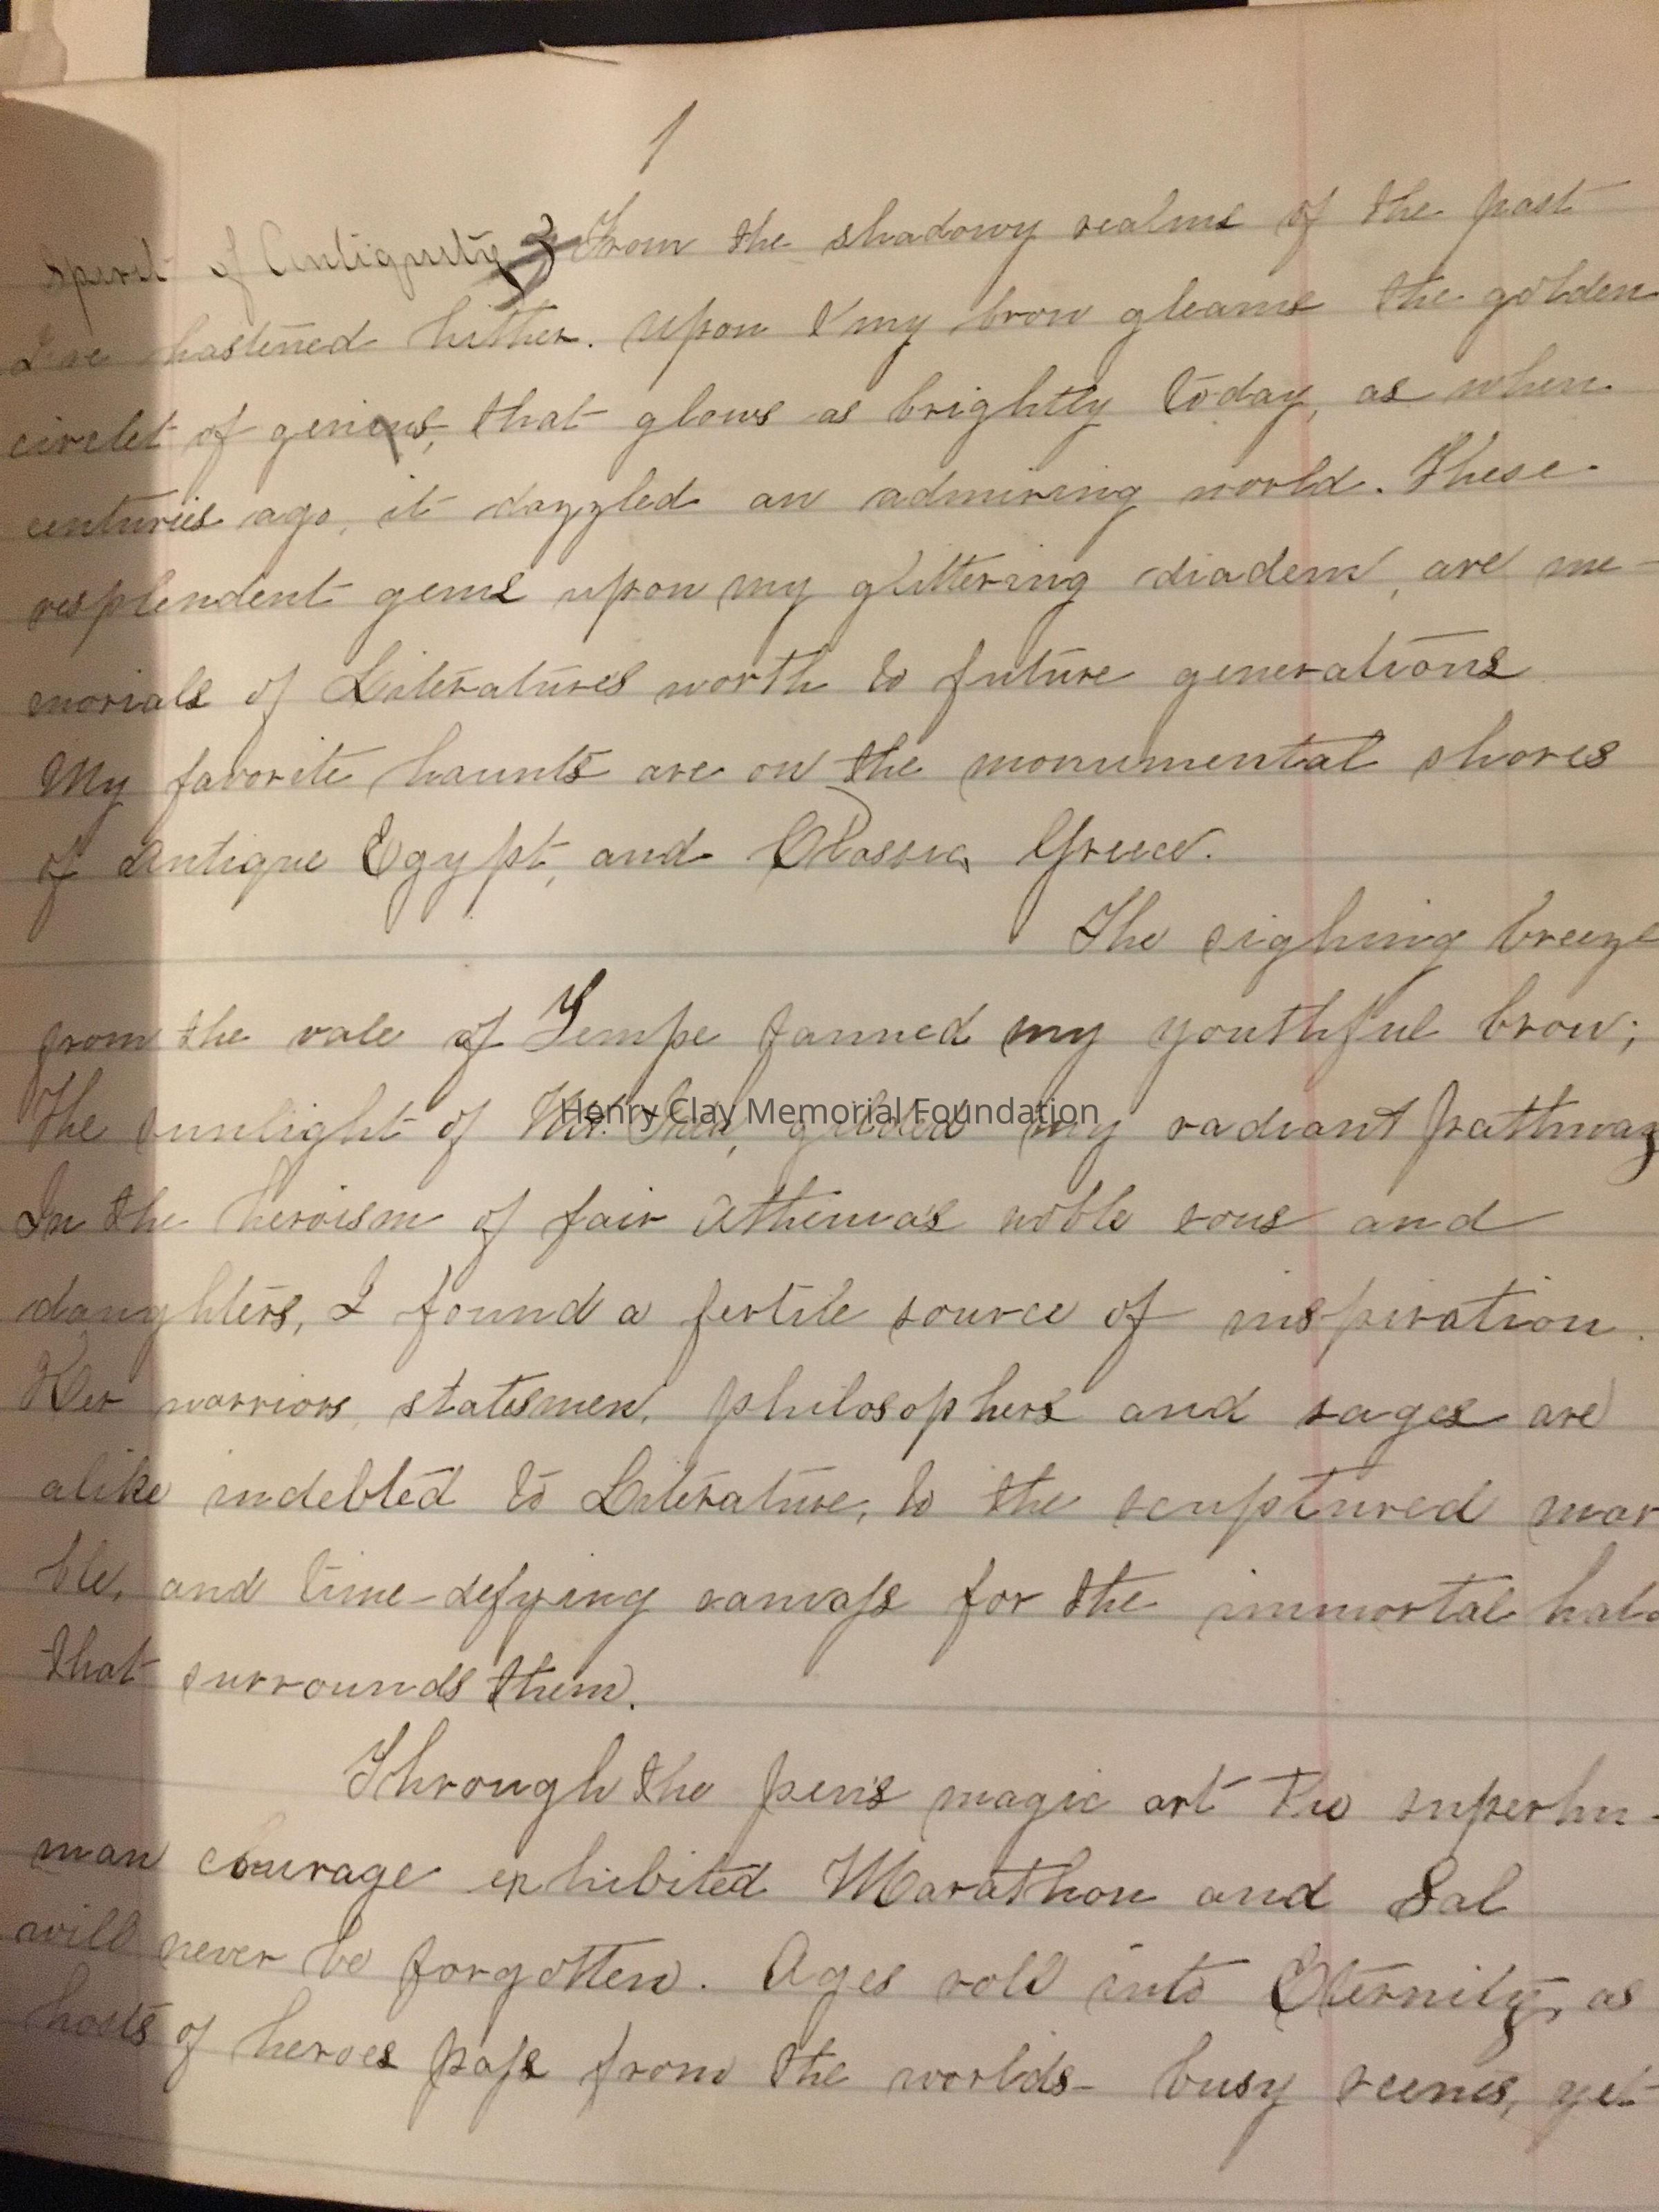 1
Spirit of Antiquity } From the shadowy realms of the past
I've hastened hither. Upon my brow gleams the golden
circlet of genius, that glows as brightly today, as when
centuries ago, it dazzled an admiring world. These
resplendent gems upon my glittering diadem, are me-
morials of Literatures worth to future generations
My favorite haunts are on the monumental shores
of Antique Egypt, and Classic Greece.
The sighing breeze
from the vale of Tempe fanned my youthful brow;
The sunlight of gilded my radiant pathway
Henry Clay Memorial Foundation
In the heroism of fair Athena's noble sons and
daughters, I found a fertile source of inspiration.
Her warriors, statesmen, philosophers and sages are
alike indebted to Literature, to the scuptured mar
ble, and time-defying canvass for the immortal halo
that surrounds them.
Through the pen's magic art the superhu-
man courage exhibited Marathon and Sal
will never be forgotten. Ages roll into Eternity, as
hosts of heroes pass from the worlds- busy scenes, yet